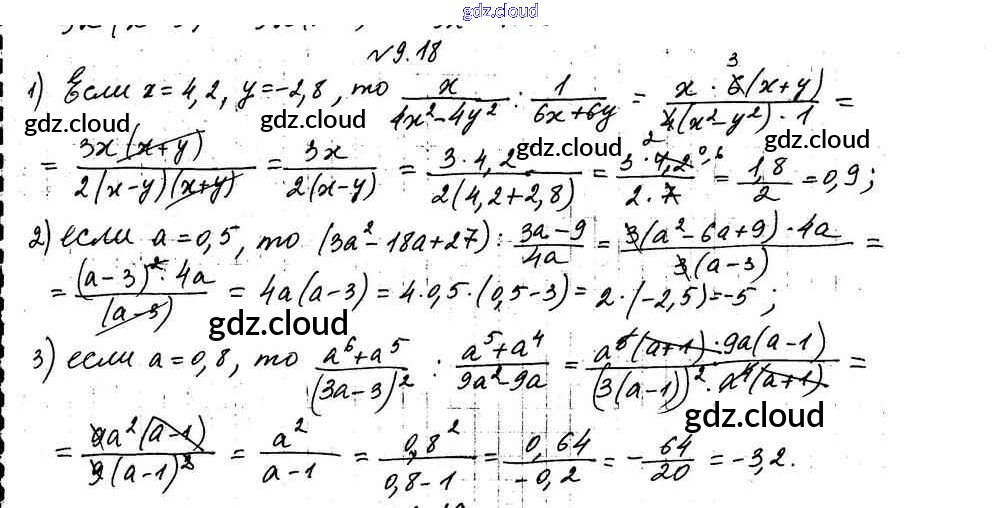 gdz.cloud
№ 9.18
1) Если x = 4,2, y = -2,8, то x/(4x² - 4y²) : 1/(6x + 6y) = (x · 6̸ ³ (x + y))/(4̸ ₂ (x² - y²) · 1) =
gdz.cloud gdz.cloud gdz.cloud
= 3x(x + y)/(2(x - y)(x + y)) = 3x/(2(x - y)) = (3 · 4,2)/(2(4,2 + 2,8)) = (3 · 4,2 ^0,6)/(2 · 7) = 1,8/2 = 0,9;
gdz.cloud
2) если a = 0,5, то (3a² - 18a + 27) : (3a - 9)/4a = (3(a² - 6a + 9) · 4a)/(3(a - 3)) =
= ((a - 3)² · 4a)/(a - 3) = 4a(a - 3) = 4 · 0,5 · (0,5 - 3) = 2 · (-2,5) = -5;
gdz.cloud
3) если a = 0,8, то (a⁶ + a⁵)/(3a - 3)² : (a⁵ + a⁴)/(9a² - 9a) = (a⁵(a + 1) · 9a(a - 1))/((3(a - 1))² · a⁴(a + 1)) =
gdz.cloud
= 9a²(a - 1)/(9(a - 1)²) = a²/(a - 1) = 0,8²/(0,8 - 1) = 0,64/(-0,2) = - 64/20 = -3,2.
gdz.cloud